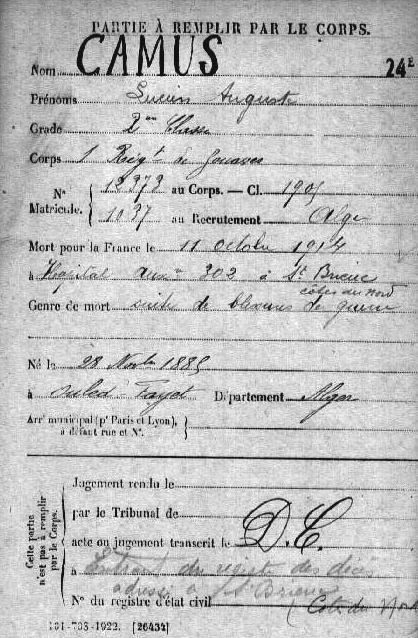 PARTIE À REMPLIR PAR LE CORPS.
Nom CAMUS 24E
Prénoms Lucien Auguste
Grade 2me Classe
Corps 1 Regt de Zouaves
No Matricule. { 12373 au Corps. — Cl. 1905
1037 au Recrutement Alger
Mort pour la France le 11 octobre 1914
à Hôpital auxre 302 à St Brieuc
côtes du Nord
Genre de mort suite de blessures de guerre
Né le 28 Novbre 1885
à ouled Fayet Département Alger
Arrt municipal (pr Paris et Lyon), à défaut rue et No. }
Cette partie n'est pas à remplir par le Corps.
Jugement rendu le
par le Tribunal de
acte ou jugement transcrit le D.C.
à Extrait du registre des décès
adressé à St Brieuc
No du registre d'état civil (Côtes du Nord
101-703-1922. [26434]